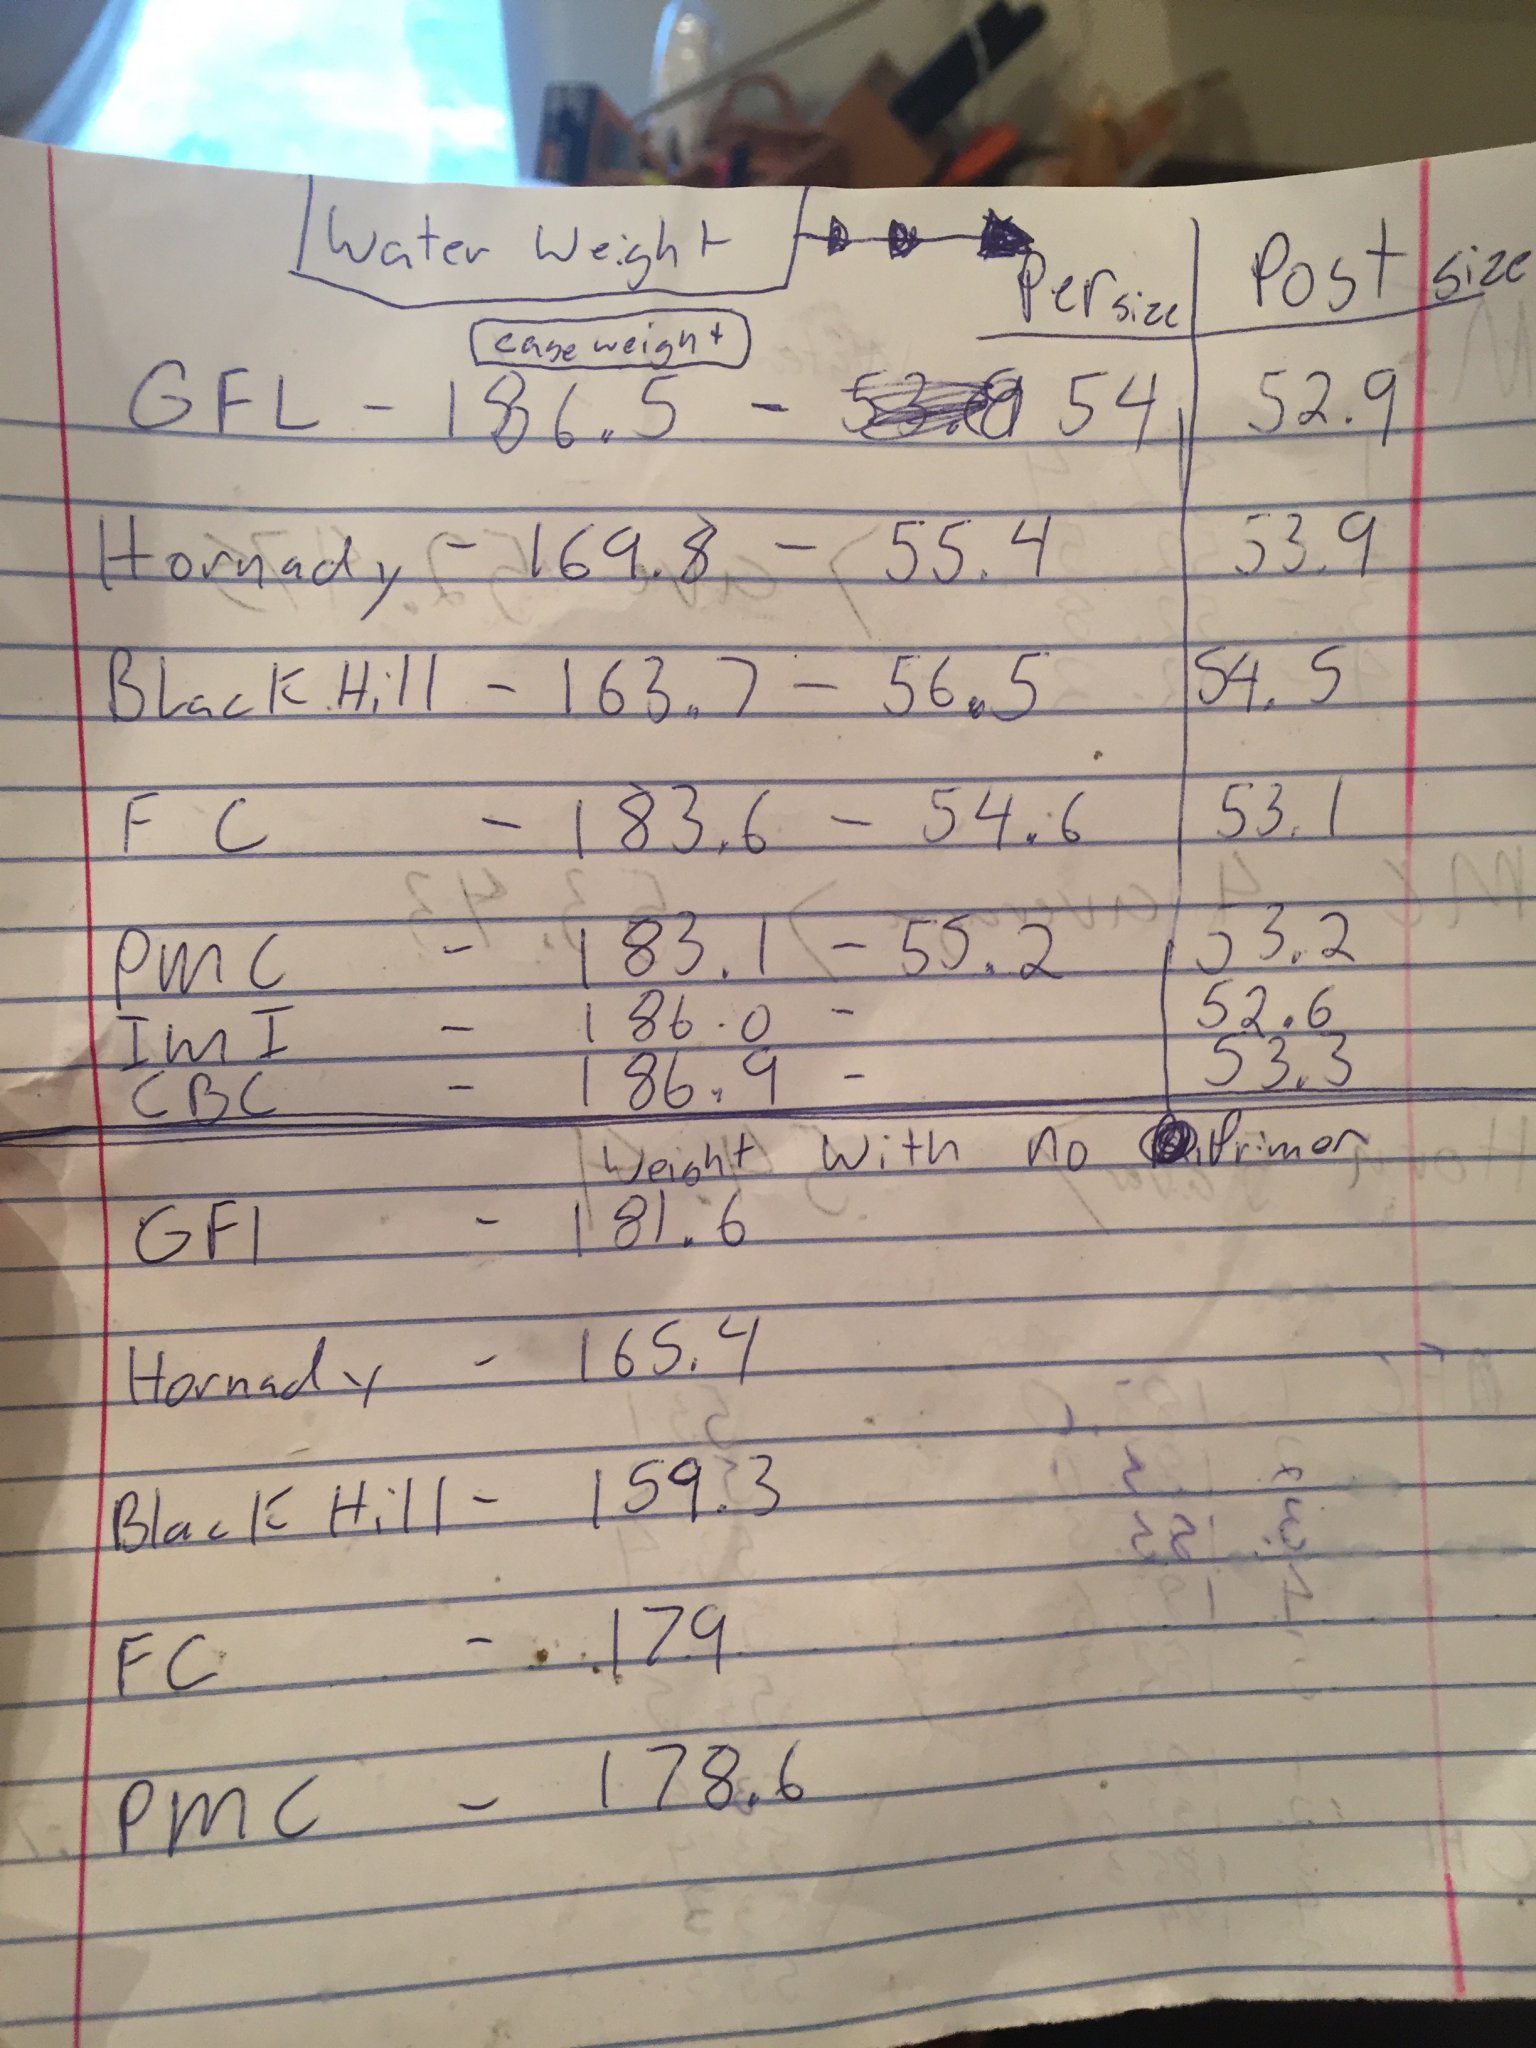 Water Weight
Per size Post size
case weight
GFL - 186.5 - 54 52.9
Hornady - 169.8 - 55.4 53.9
Black Hill - 163.7 - 56.5 54.5
FC - 183.6 - 54.6 53.1
PMC - 183.1 - 55.2 53.2
IMI - 186.0 - 52.6
CBC - 186.9 - 53.3
Weight with no Primer
GFl - 181.6
Hornady - 165.4
Black Hill - 159.3
FC - 179
PMC - 178.6